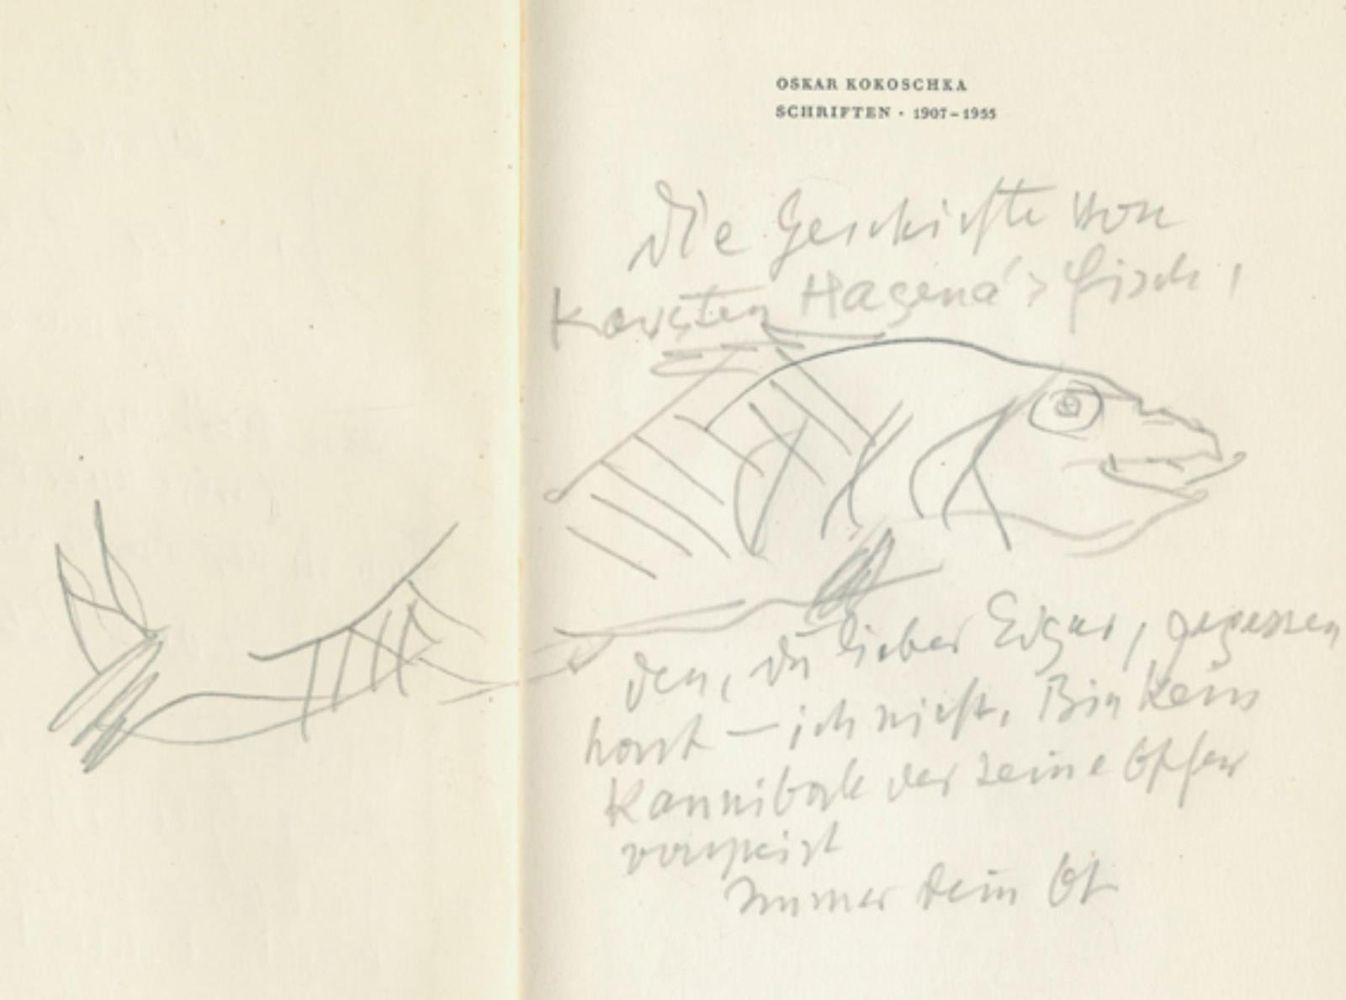 OSKAR KOKOSCHKA
SCHRIFTEN · 1907–1955
Die Geschichte von
Karsten Hagena's Fisch,
den, du lieber Edgar, gegessen
hast — ich nicht. Bin kein
Kannibale der seine Opfer
verspeist
Immer dein OK